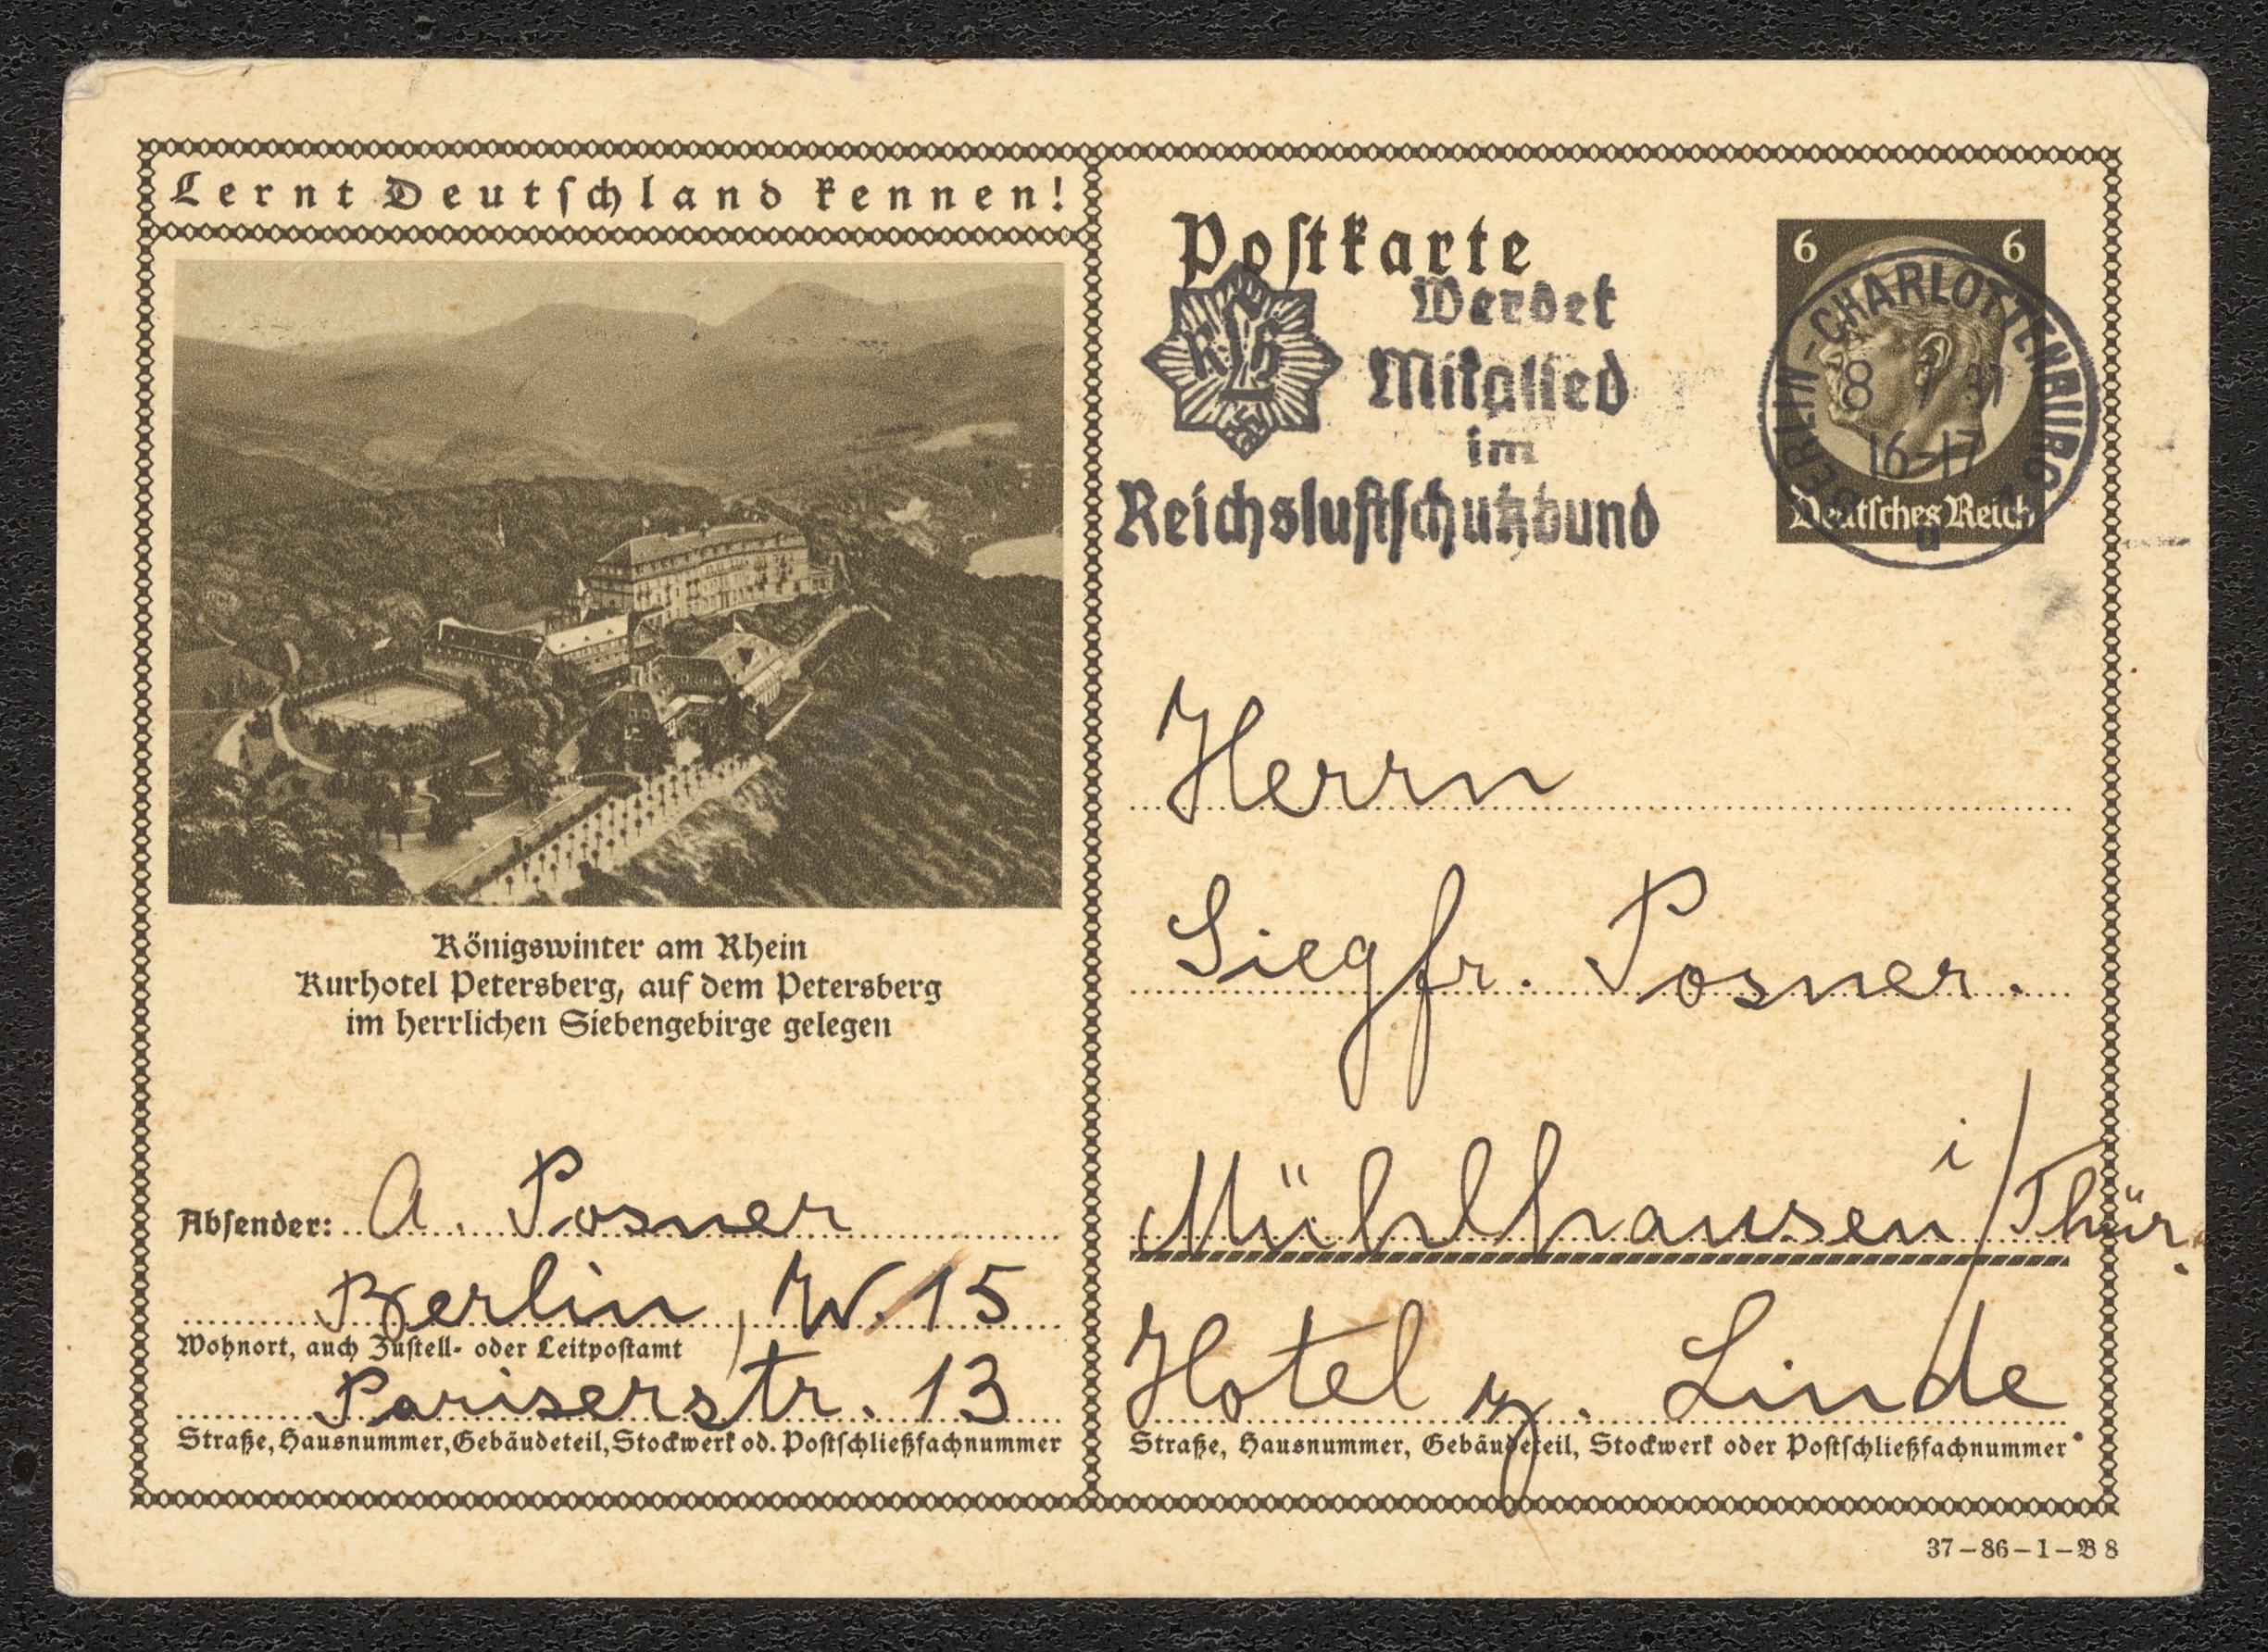 Lernt Deutschland kennen!
Königswinter am Rhein
Kurhotel Petersberg, auf dem Petersberg
im herrlichen Siebengebirge gelegen
Absender: A. Posner
Berlin, W. 15
Wohnort, auch Zustell- oder Leitpostamt
Pariserstr. 13
Straße, Hausnummer, Gebäudeteil, Stockwerk od. Postschließfachnummer
Postkarte
RLB
Werdet
Mitglied
im
Reichsluftschutzbund
6 6
Deutsches Reich
BERLIN-CHARLOTTENBURG
8 7 37
16-17
Herrn
Siegfr. Posner.
Mühlhausen i/Thür.
Hotel z. Linde
Straße, Hausnummer, Gebäudeteil, Stockwerk oder Postschließfachnummer
37-86-1-B 8